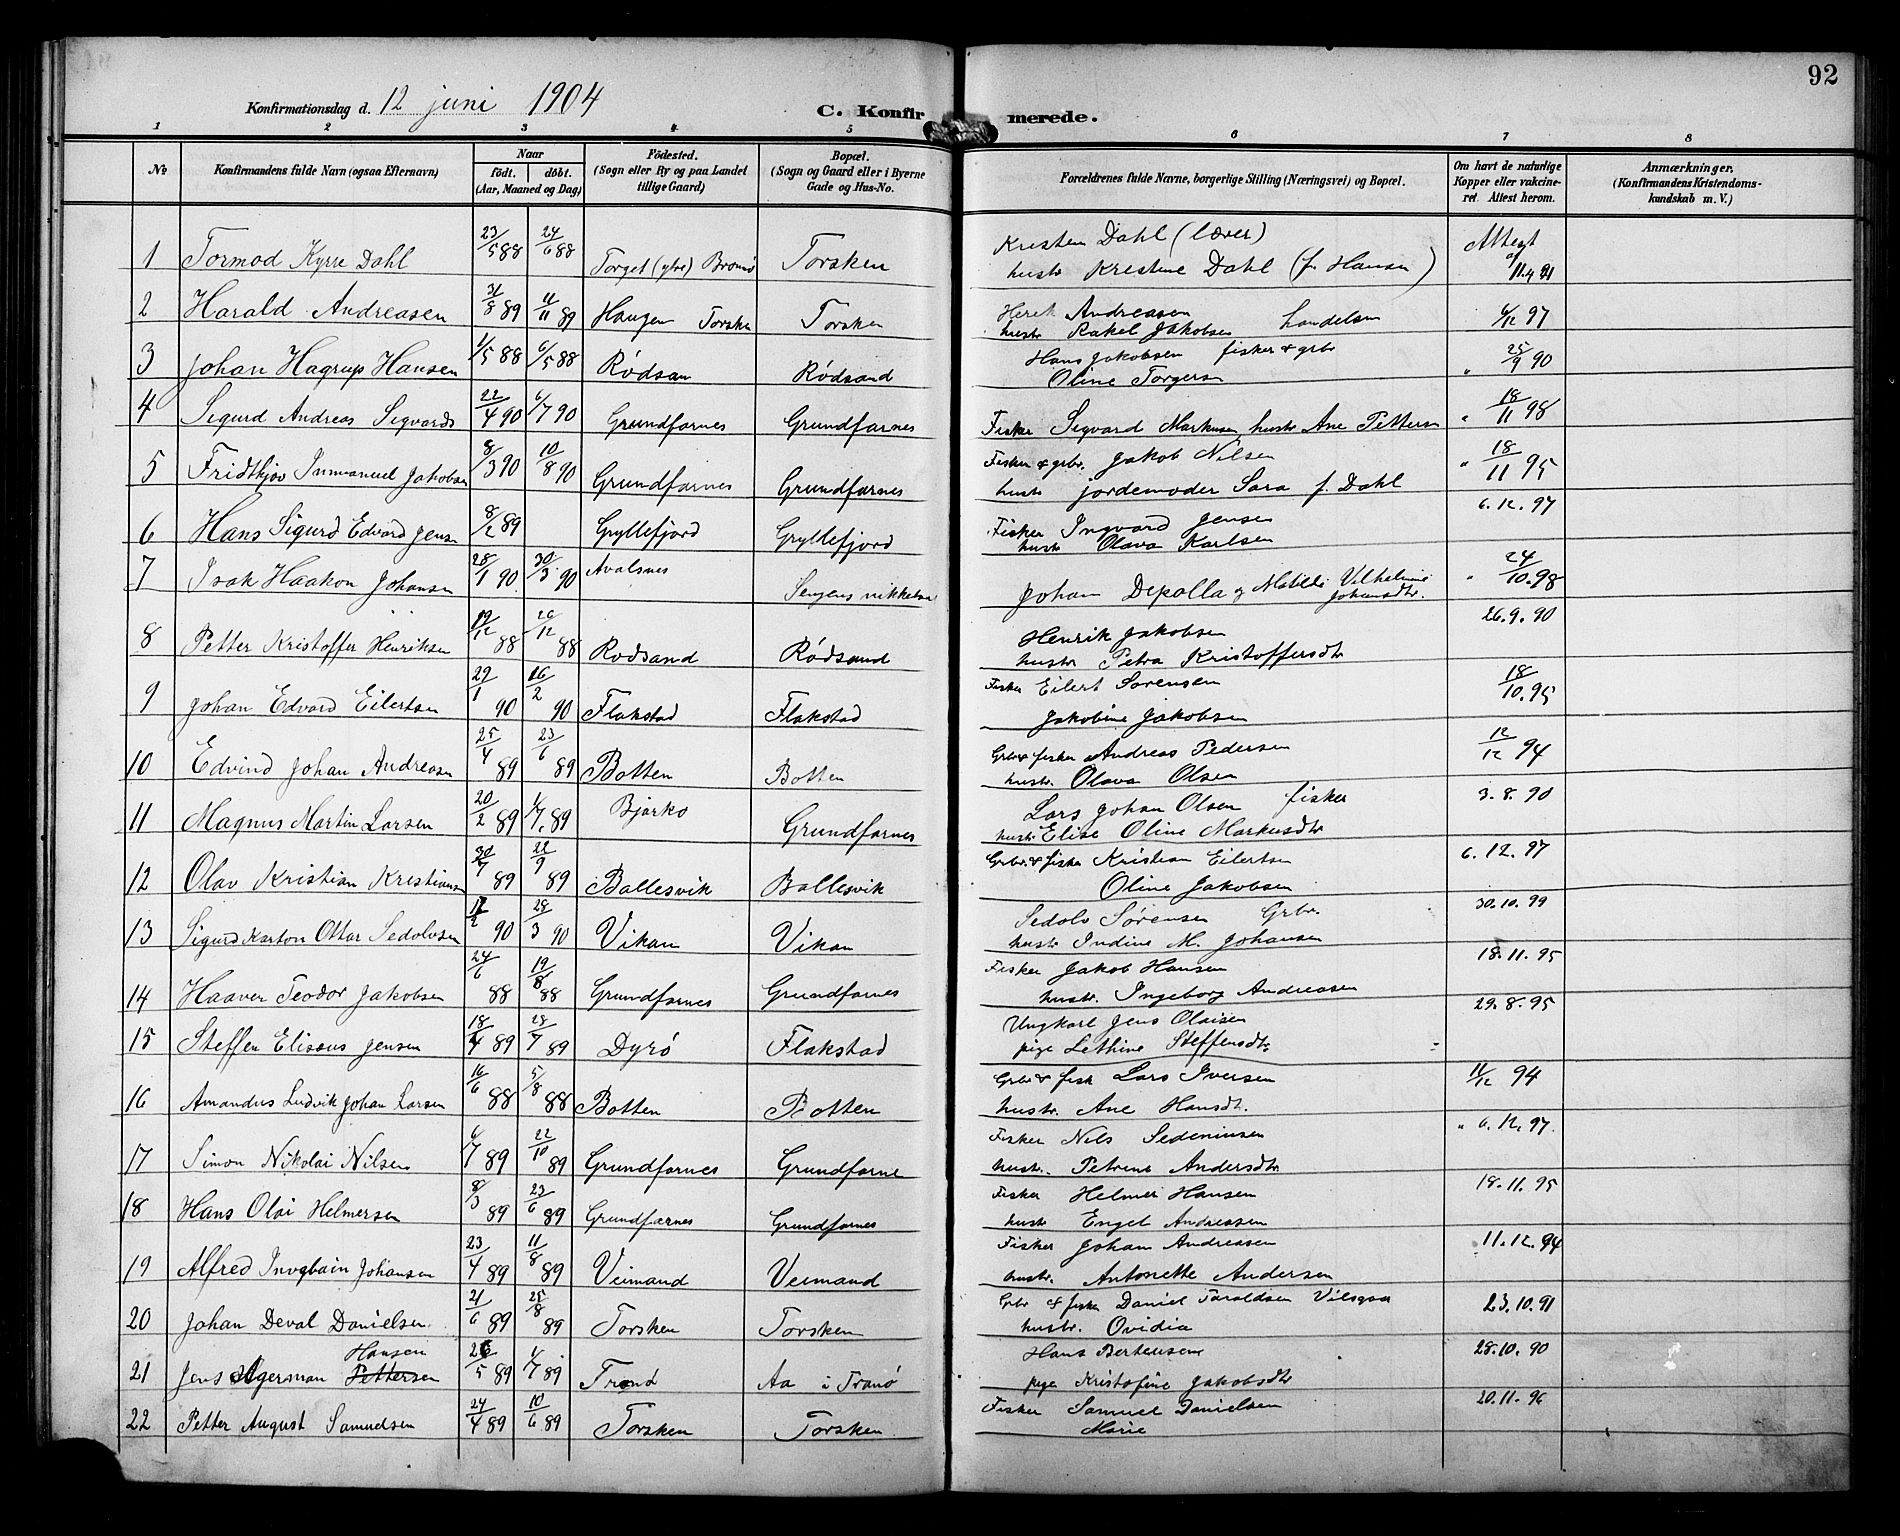 92
Konfirmationsdag d. 12 juni 1904
C. Konfirmerede.
1 2 3 4 5 6 7 8
No
Konfirmandens fulde Navn (ogsaa Efternavn)
Naar
födt. döbt.
(Aar, Maaned og Dag)
Födested.
(Sogn eller By og paa Landet
tillige Gaard)
Bopæl.
(Sogn og Gaard eller i Byerne
Gade og Hus-No.
Forældrenes fulde Navne, borgerlige Stilling (Næringsvei) og Bopæl.
Om havt de naturlige
Kopper eller vakcine-
ret. Attest herom.
Anmærkninger.
(Konfirmandens Kristendoms-
kundskab m. V.)
1 Tormod Kyrre Dahl 23/5 88 24/6 88 Torget (ytre) Brønø Torsken Kristen Dahl (lærer) Attest af
hustr Kristine Dahl (f. Hansen) 11.4 91
2 Harald Andreasen 31/8 89 11/11 89 Haugen Torsken Torsken Andreasen
hustr Rakel Jakobsen handelsm 4/12 97
3 Johan Hagrup Hansen 1/5 88 6/5 88 Rödsan Rödsand Hans Jakobsen fisker & grbr
Oline Torgersn " 25/9 90
4 Sigurd Andreas Sigvards 22/4 90 6/7 90 Grundfarnes Grundfarnes Fisker Sigvard Markusen hustr Ane Petters " 18/11 98
5 Fridthjov Immanuel Jakobsen 8/3 90 10/8 90 Grundfarnes Grundfarnes Fisker & grbr. Jakob Nilsen
hustr jordemoder Sara f. Dahl " 18/11 95
6 Hans Sigurd Edvard Jensn 8/2 89 Gryllefjord Gryllefjord Fisker Ingvard Jensen
hustr Olava Karlsen 6.12.97
7 Isak Haakon Johansen 28/1 90 30/3 90 Avalsnes Senjens nikkelv Johan Depolla og Matilde Vilhelmine
Johansdtr. " 24/10.98
8 Petter Kristoffer Henriksen 19/12 88 26/12 88 Rodsand Rödsand Henrik Jakobsen
hustr Petra Kristoffersdtr 26.9.90
9 Johan Edvard Eilertsen 29/1 90 16/2 90 Flakstad Flakstad Fisker Eilert Sørensen
Jakobine Jakobsen 18/10.95
10 Edvind Johan Andreasen 25/4 89 23/6 89 Botten Botten Grbr & fisker Andreas Pedersen
hustr. Olava Olsen 12/12 94
11 Magnus Martin Larsen 20/2 89 1/7. 89 Bjarkö Grundfarnes Lars Johan Olsen fisker
hustr Elise Oline Markusdtr 3.8.90
12 Olav Kristian Kristiansen 30/7 89 22/9 89 Ballesvik Ballesvik Grbr. & fisker Kristian Eilertsen
Oline Jakobsen 6.12.97
13 Sigurd Karton Ottar Sedolvsen 17/2 90 28/3 90 Vikan Vikan Sedolv Sörensen Grbr.
hustr Indine M. Johansen 30.10.99
14 Haaver Teodor Jakobsen 24/6 88 19/8 88 Grundfarnes Grundfarnes Fisker Jakob Hansen
hustr. Ingeborg Andreasen 18.11.95
15 Steffen Elisæus Jensen 18/4 89 28/7 89 Dyrö Flakstad Ungkarl Jens Olaisen
pige Lethine Steffensdtr 29.8.95
16 Amandus Ludvik Johan Larsen 16/6 88 5/8 88 Botten Botten Grbr & fisk Lars Iversen
hustr. Ane Hansdt. 11/12 94
17 Simon Nikolai Nilsen 6/7 89 22/10 89 Grundfarnes Grundfarne Fisker Nils Sedeniusen
hustr. Petrine Andersdtr " 6.12.97
18 Hans Olai Helmersen 8/3 89 23/6 89 Grundfarnes Grundfarnes Fisker Helmer Hansen
hustr Engel Andreasen 18.11.95
19 Alfred Inngbain Johansen 23/4 89 11/8 89 Veimand Veimand Fisker Johan Andreasen
hustr. Antonette Andersen 11.12.94
20 Johan Deval Danielsen 21/6 89 25/8 89 Torsken Torsken Grbr & fisker Daniel Taraldsen
hustr. Ovidia 23.10.91
21 Jens Agerman Pettersen Hansen 26/5 89 1/7 89 Trond Aa i Tranö Hans Berteusen
pige Kristofine Jakobsdtr 28.10.90
22 Petter August Samuelsen 24/4 89 10/6 89 Torsken Torsken Fisker Samuel Danielsen
Marie 20.11.96